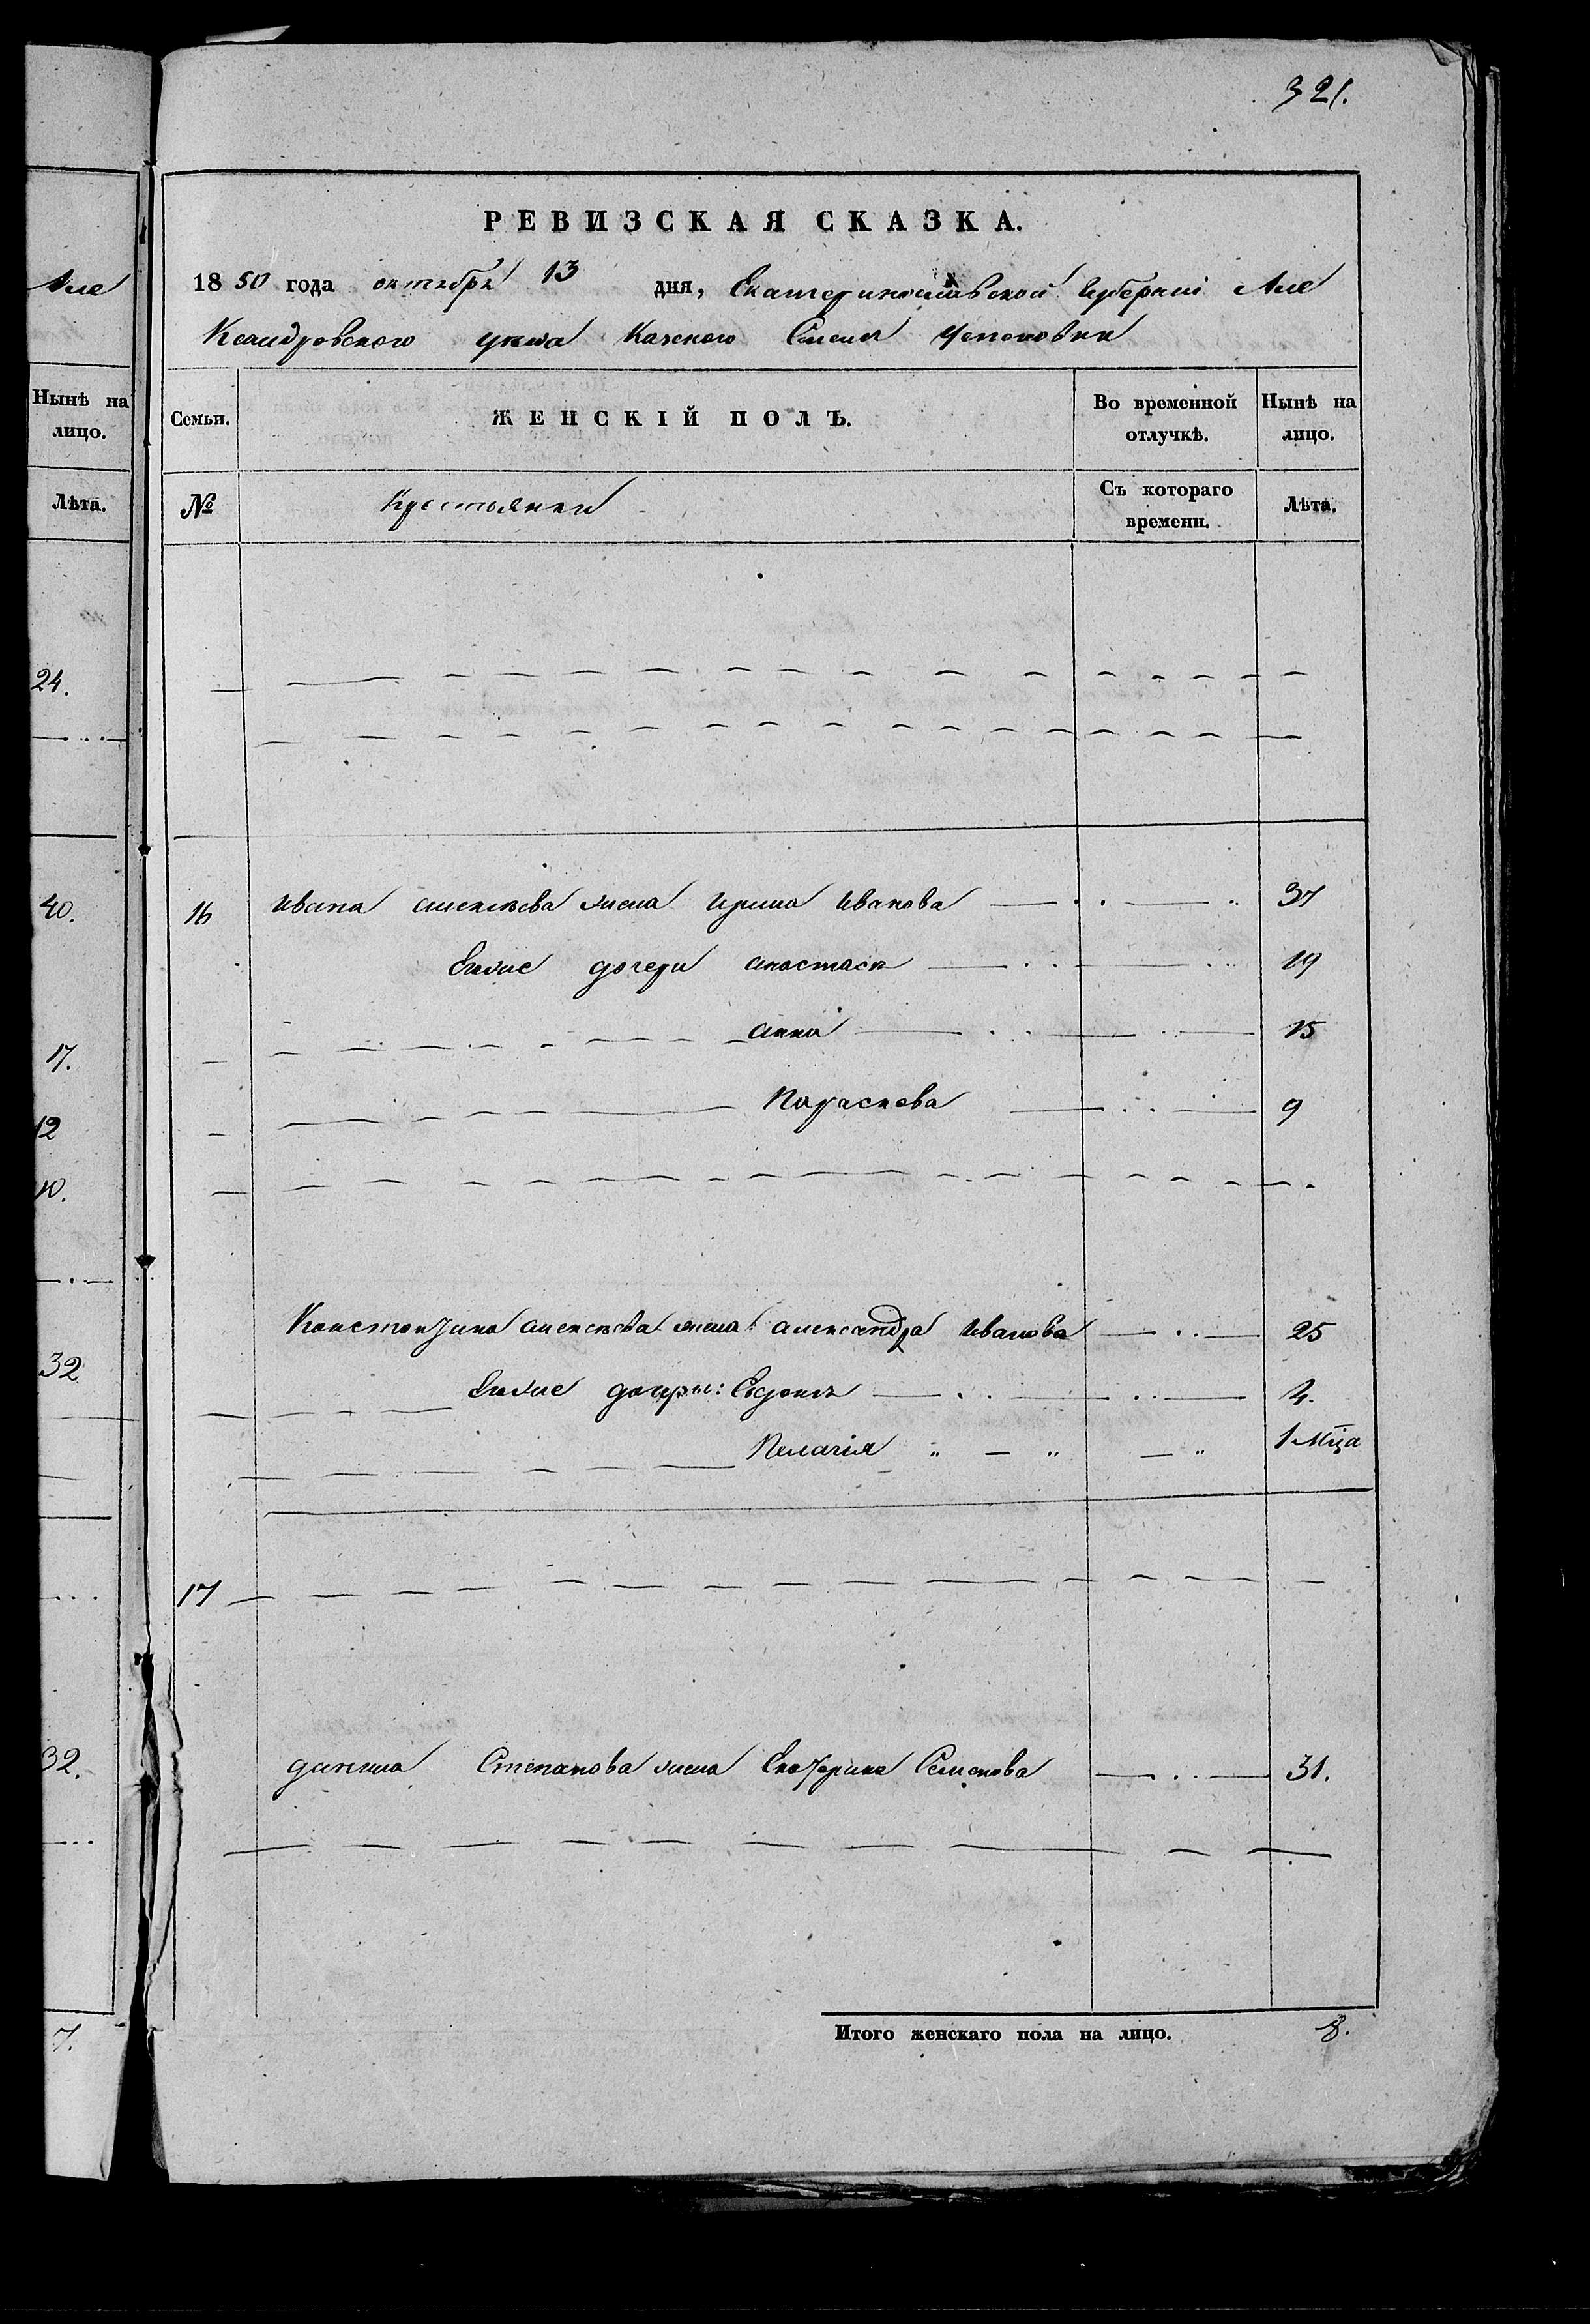 321.
Але
Нынѣ на
лицо.
Лѣта.
24.
40.
17.
12
10.
32
32.
7.
РЕВИЗСКАЯ СКАЗКА.
1850 года октября 13 дня, Екатеринославской Губерніи Але
Ксандровского уезда Казеного Селенія
Семьи. ЖЕНСКІЙ ПОЛЪ. Во временной отлучкѣ. Нынѣ на лицо.
№ Крестьянки Съ котораго времени. Лѣта.
16 Ивана алексѣева жена Ирина Иванова 37
Егоже дочери анастасія 19
анна 15
Параскева 9
Константина алексѣева жена александра Иванова 25
Егоже дочери: Евдокія 4.
Пелагія 1 мца
17
данила Степанова жена Екатерина Семенова 31.
Итого женскаго пола на лицо. 8.